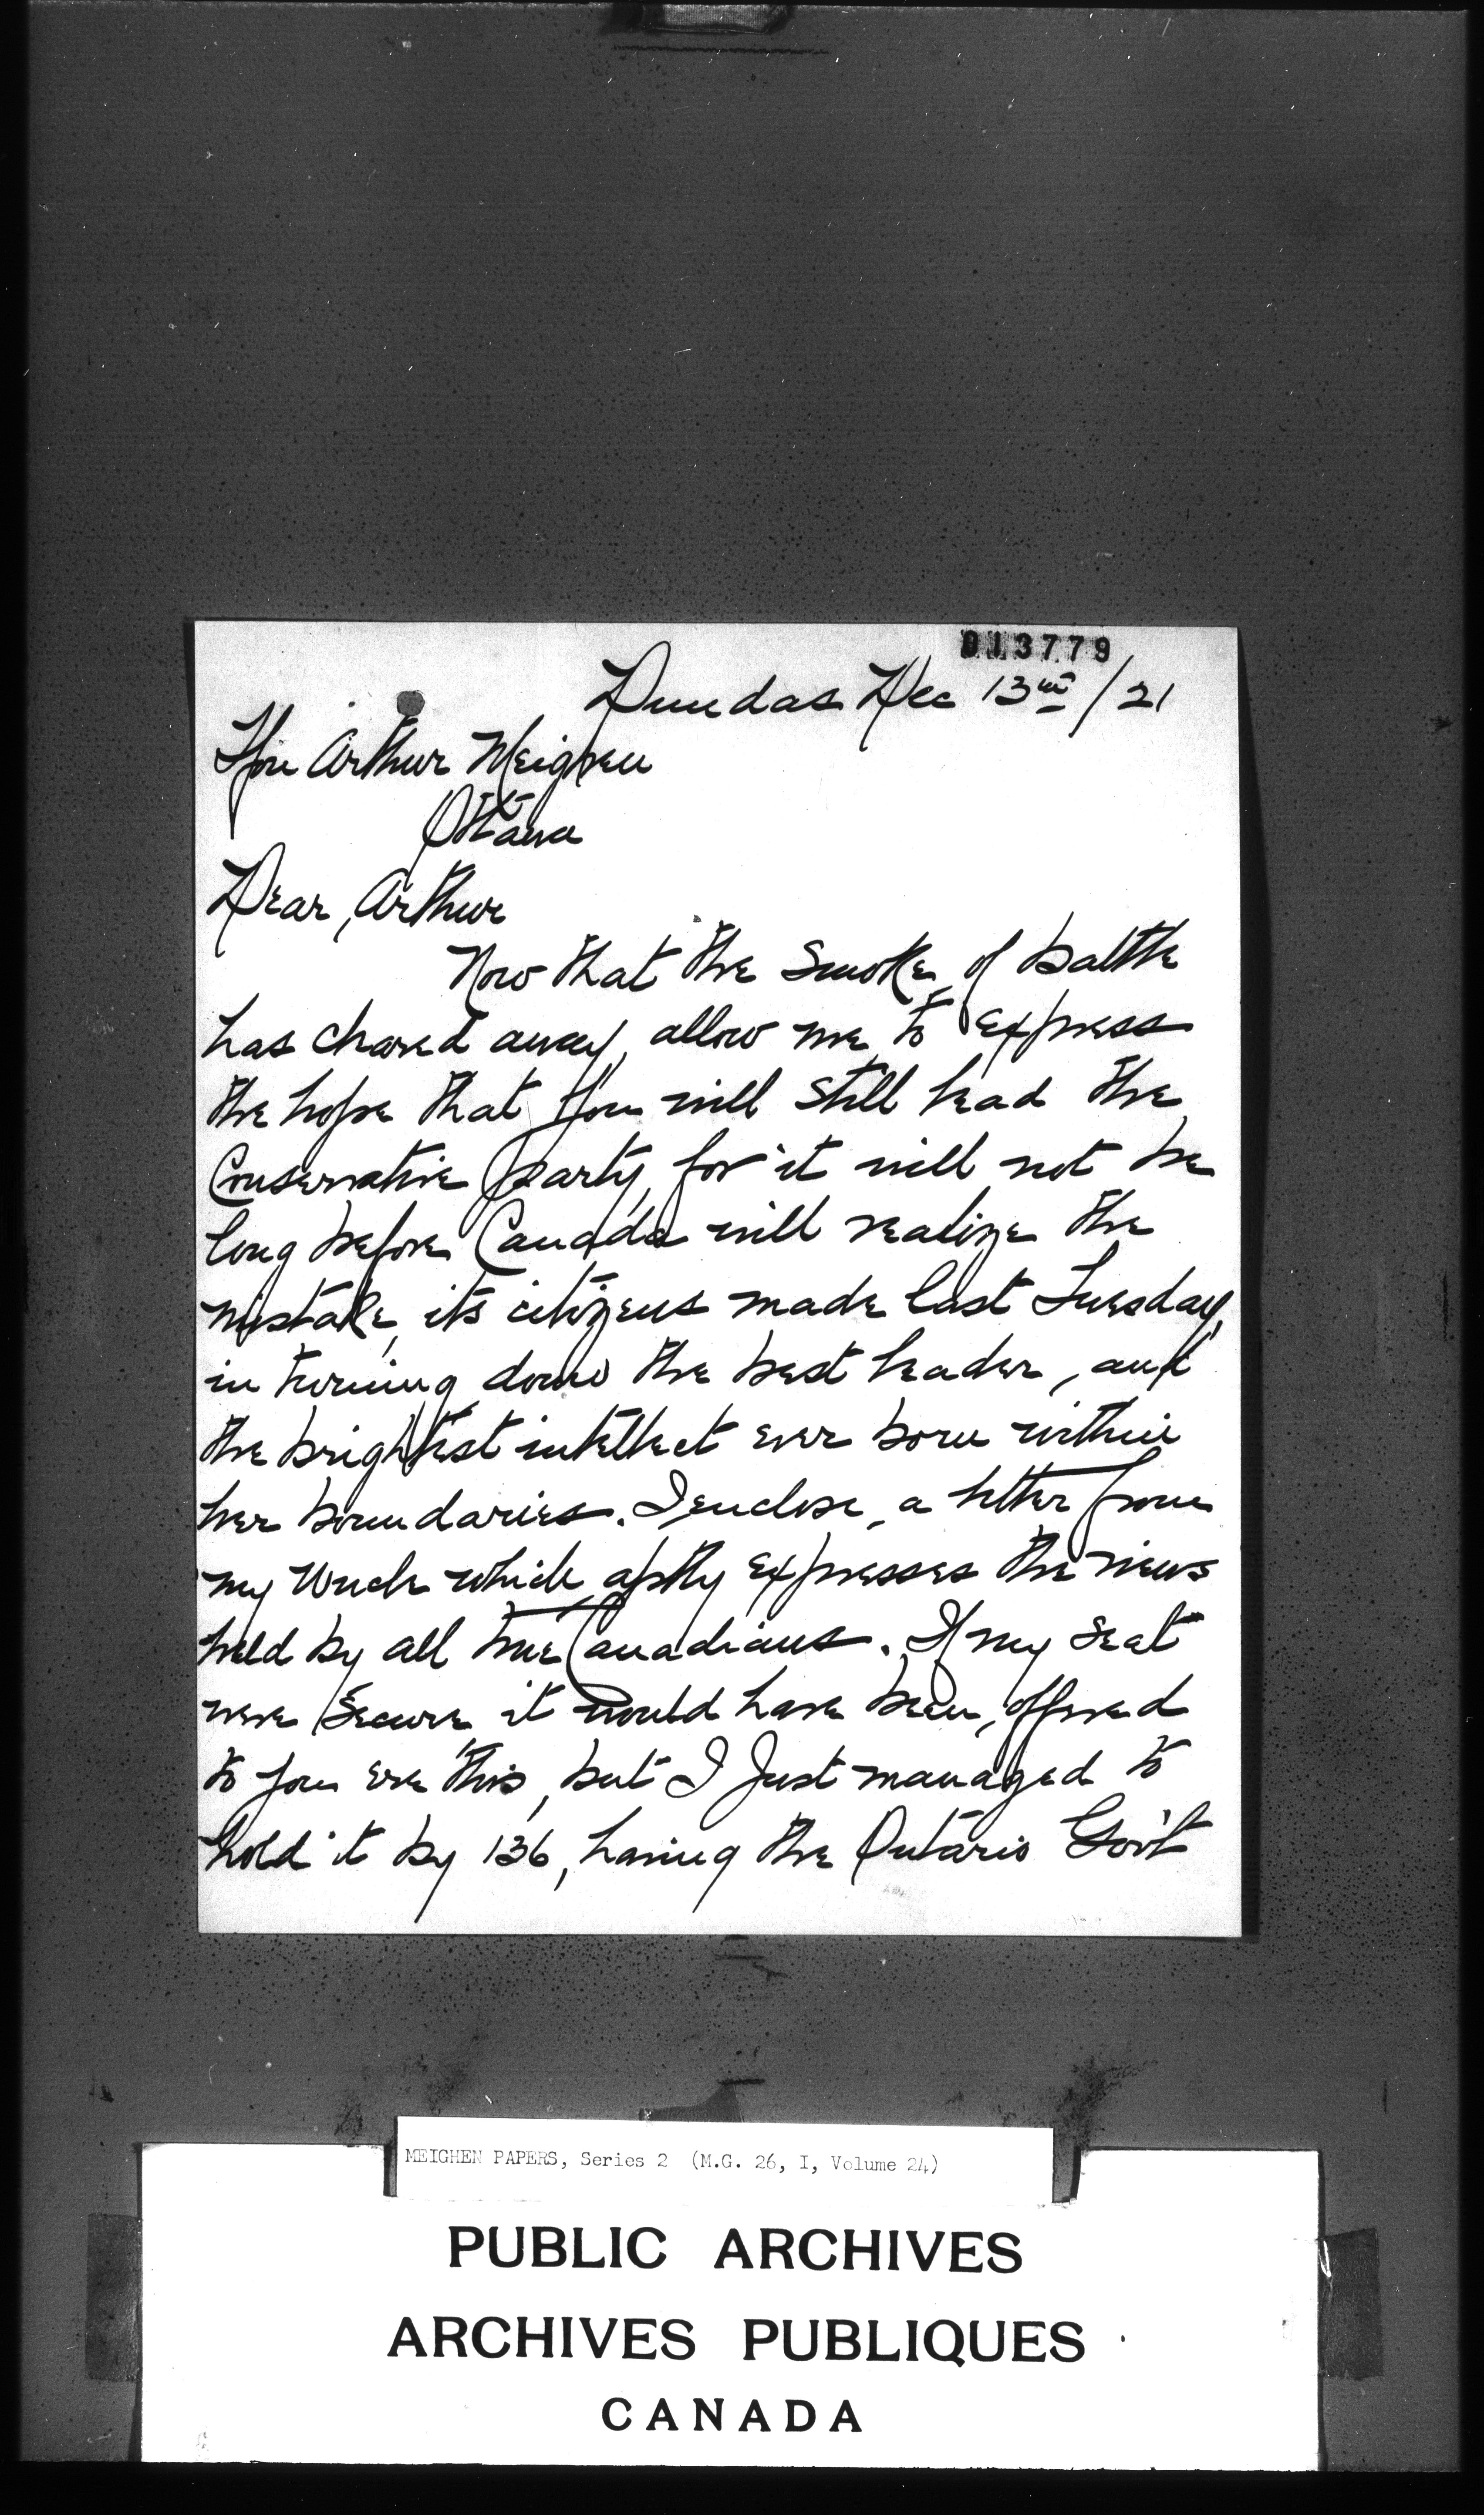 013779
Dundas Dec 13th/21
Hon Arthur Meighen
Ottawa
Dear, Arthur
Now that the smoke of battle
has cleared away, allow me to express
the hope that you will still lead the
Conservative party, for it will not be
long before Canada will realize the
mistake, its citizens made last Tuesday,
in turning down the best leader, and
the brightest intellect ever born within
her boundaries. I enclose, a letter from
my Uncle which aptly expresses the views
held by all true Canadians. If my seat
were secure it would have been, offered
to you ere this, but I just managed to
hold it by 136, having the Ontario Gov't
MEIGHEN PAPERS, Series 2 (M.G. 26, I, Volume 24)
PUBLIC ARCHIVES
ARCHIVES PUBLIQUES
CANADA